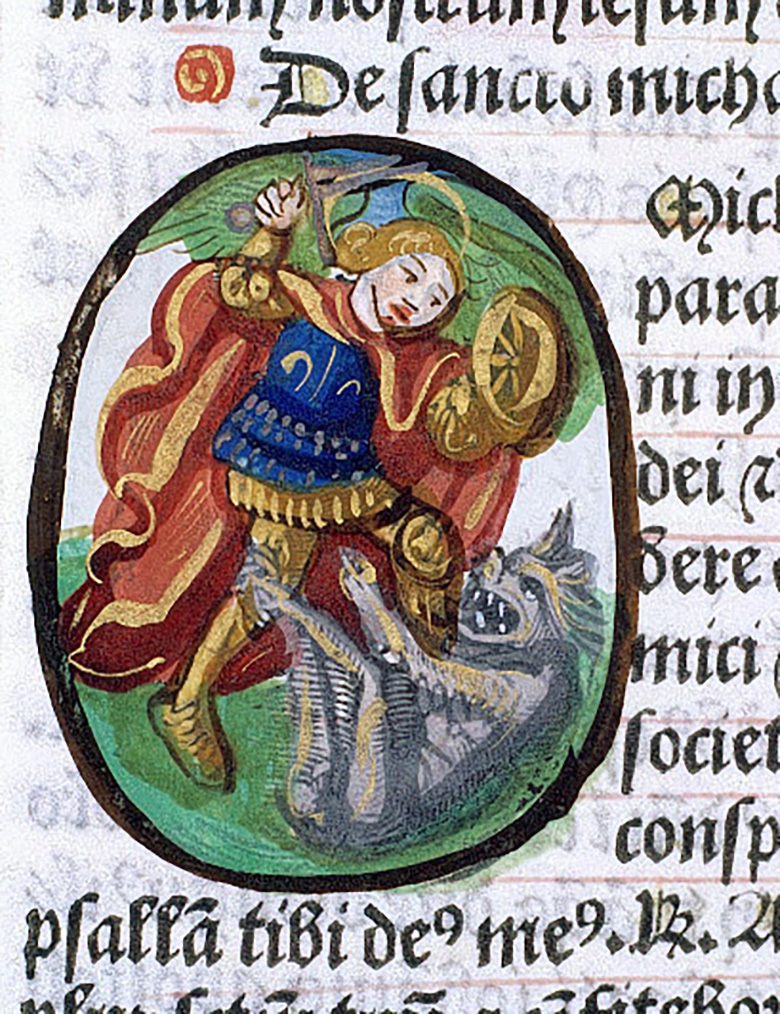 De sancto mich
Mich
para
ni in
dei
dere
mici
societ
consp
psallā tibi deꝰ meꝰ. ℟. A